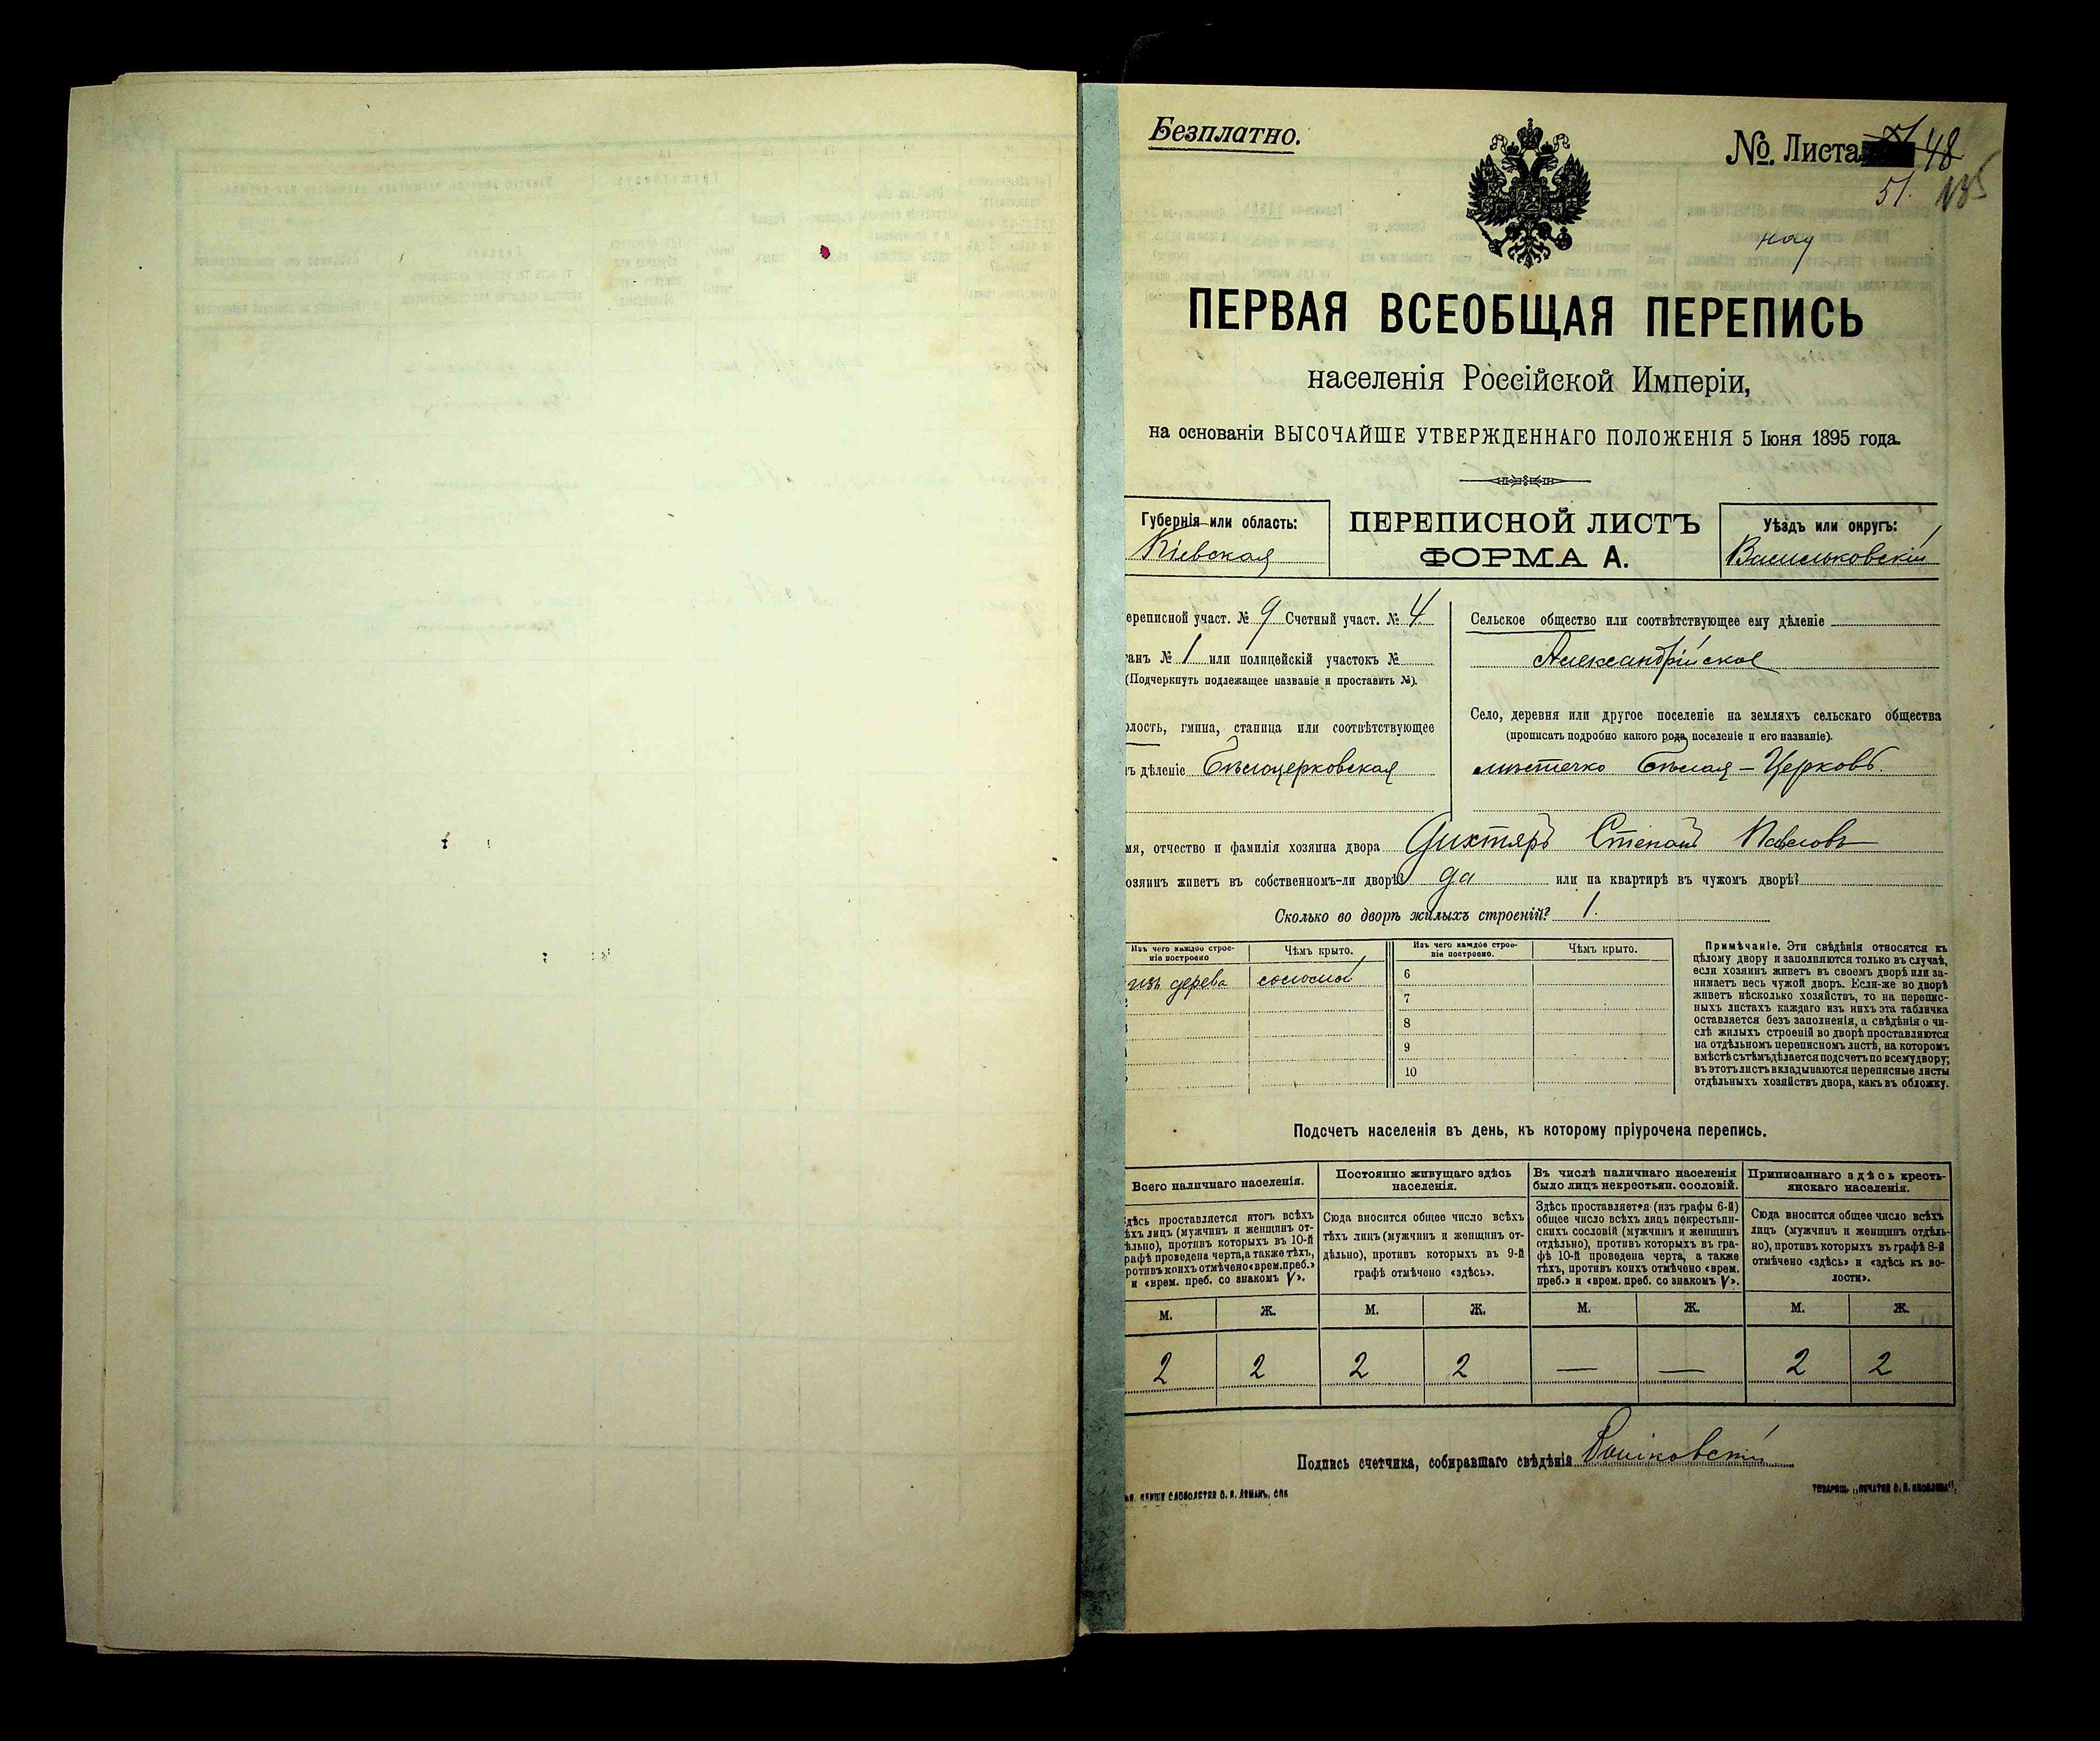 Безплатно.
№. Листа 48
51.
ПЕРВАЯ ВСЕОБЩАЯ ПЕРЕПИСЬ
населенія Россійской Имперіи,
на основаніи ВЫСОЧАЙШЕ УТВЕРЖДЕННАГО ПОЛОЖЕНІЯ 5 Іюня 1895 года.
Губернія или область:
Кіевская
ПЕРЕПИСНОЙ ЛИСТЪ
ФОРМА А.
Уѣздъ или округъ:
Васильковскій
ереписной участ. № 9 Счетный участ. № 4
анъ № 1 или полицейскій участокъ №
(Подчеркнуть подлежащее названіе и проставить №).
олость, гмина, станица или соотвѣтствующее
ъ дѣленіе Бѣлоцерковская
Сельское общество или соотвѣтствующее ему дѣленіе
Александрійское
Село, деревня или другое поселеніе на земляхъ сельскаго общества
(прописать подробно какого рода поселеніе и его названіе).
мѣстечко Бѣлая-Церковь.
мя, отчество и фамилія хозяина двора Дихтярь Степанъ Павловъ
озяинъ живетъ въ собственномъ-ли дворѣ? да или на квартирѣ въ чужомъ дворѣ?
Сколько во дворѣ жилыхъ строеній? 1.
Изъ чего каждое строе-
ніе построено
Чѣмъ крыто.
Изъ чего каждое строе-
ніе построено.
Чѣмъ крыто.
изъ дерева соломой
6
7
8
9
10
Примѣчаніе. Эти свѣдѣнія относятся къ
цѣлому двору и заполняются только въ случаѣ,
если хозяинъ живетъ въ своемъ дворѣ или за-
нимаетъ весь чужой дворъ. Если-же во дворѣ
живетъ нѣсколько хозяйствъ, то на перепис-
ныхъ листахъ каждаго изъ нихъ эта табличка
оставляется безъ заполненія, а свѣдѣнія о чи-
слѣ жилыхъ строеній во дворѣ проставляются
на отдѣльномъ переписномъ листѣ, на которомъ
вмѣстѣ съ тѣмъ дѣлается подсчетъ по всему двору;
въ этотъ листъ вкладываются переписные листы
отдѣльныхъ хозяйствъ двора, какъ въ обложку.
Подсчетъ населенія въ день, къ которому пріурочена перепись.
Всего наличнаго населенія.
Постоянно живущаго здѣсь
населенія.
Въ числѣ наличнаго населенія
было лицъ некрестьян. сословій.
Приписаннаго здѣсь кресть-
янскаго населенія.
дѣсь проставляется итогъ всѣхъ
ѣхъ лицъ (мужчинъ и женщинъ от-
ѣльно), противъ которыхъ въ 10-й
рафѣ проведена черта, а также тѣхъ,
ротивъ коихъ отмѣчено «врем. преб.»
и «врем. преб. со знакомъ V».
Сюда вносится общее число всѣхъ
тѣхъ лицъ (мужчинъ и женщинъ от-
дѣльно), противъ которыхъ въ 9-й
графѣ отмѣчено «здѣсь».
Здѣсь проставляется (изъ графы 6-й)
общее число всѣхъ лицъ некрестьян-
скихъ сословій (мужчинъ и женщинъ
отдѣльно), противъ которыхъ въ гра-
фѣ 10-й проведена черта, а также
тѣхъ, противъ коихъ отмѣчено «врем.
преб.» и «врем. преб. со знакомъ V».
Сюда вносится общее число всѣхъ
лицъ (мужчинъ и женщинъ отдѣль-
но), противъ которыхъ въ графѣ 8-й
отмѣчено «здѣсь» и «здѣсь къ во-
лости».
М. Ж. М. Ж. М. Ж. М. Ж.
2 2 2 2 — — 2 2
Подпись счетчика, собиравшаго свѣдѣнія